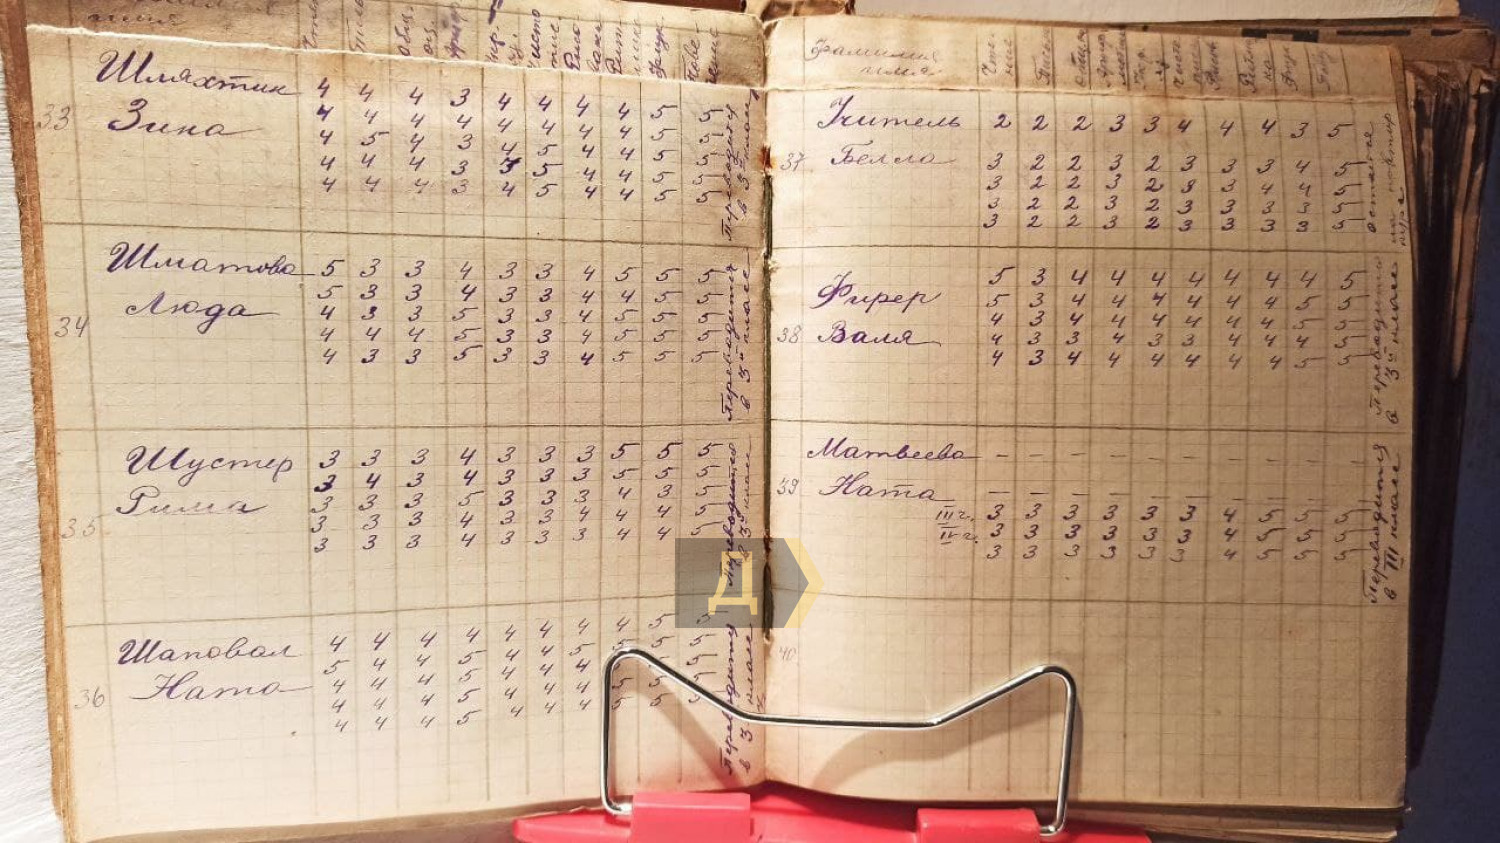 имя
Шляхтин 4 4 4 3 4 4 4 4 5 5
33 Зина 4 4 4 4 4 4 4 4 5 5
4 5 4 3 4 5 4 4 5 5
4 4 4 3 3 5 4 4 5 5
4 4 4 3 4 5 4 4 5 5
Переводится
в 3й класс
Шматова 5 3 3 4 3 3 4 5 5 5
Люда 5 3 3 4 3 3 4 4 5 5
34 4 3 3 5 3 3 4 5 5 5
4 4 4 5 3 3 4 5 5 5
4 3 3 5 3 3 4 5 5 5
Переводится
в 3й класс
Шустер 3 3 3 4 3 3 3 5 5 5
3 4 3 4 3 3 3 5 5 5
Рима 3 3 3 5 3 3 3 4 3 5
35 3 3 3 4 3 3 4 4 4 5
3 3 3 4 3 3 3 4 4 5
Переводится
в 3й класс
Шаповал 4 4 4 4 4 4 4 4 5 5
5 4 4 5 4 4 5 5
Ната 4 4 4 4 4 4 4
36 4 4 4 5 4 4 4 5 5 5
4 4 4 5 4 4 4 5 5 5
Переводится
в 3й класс
Фамилия
имя
Учитель 2 2 2 3 3 4 4 4 3 5
37 Белла 3 2 2 3 2 3 3 3 4 5
3 2 2 3 2 3 3 4 4 5
3 2 2 3 2 3 3 3 3 5
3 2 2 3 2 3 3 3 3 5
остается
на
5 3 4 4 4 4 4 4 4 5
Фирер 5 3 4 4 4 4 4 4 5 5
4 3 4 4 4 4 4 4 5 5
38 Валя 4 3 3 4 3 3 4 4 4 5
4 3 4 4 4 4 4 4 5 5
Переводится
в 3й класс
Матвеева – – – – – – – – – –
39 Ната – – – – – – – – – –
III ч. 3 3 3 3 3 3 4 5 5 5
IV ч. 3 3 3 3 3 3 4 5 5 5
3 3 3 3 3 3 4 5 5 5
Переводится
в III класс
40
Д